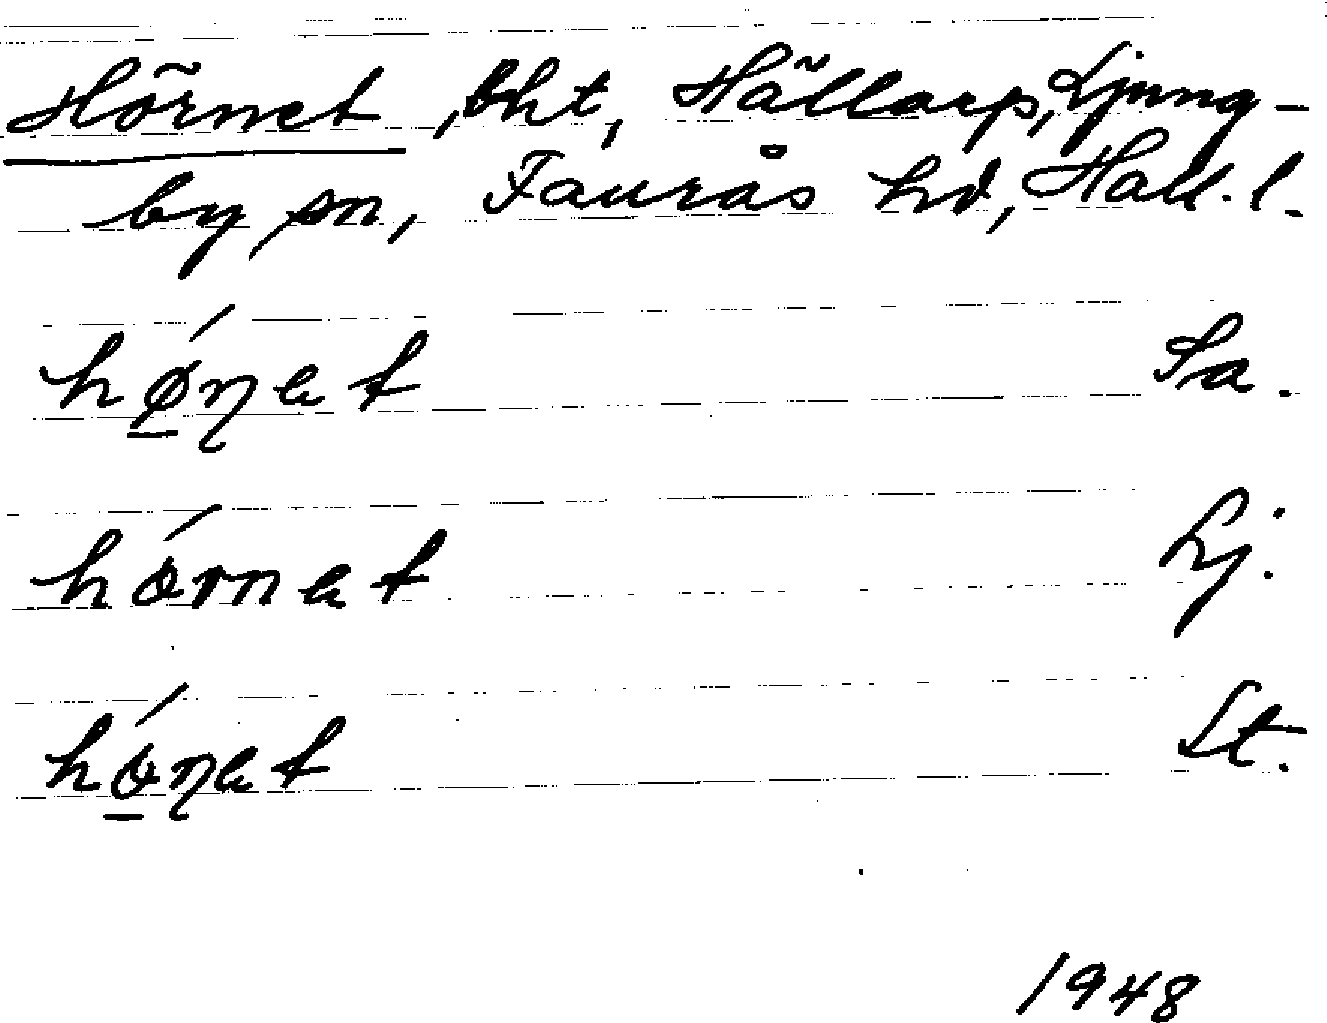 Hörnet, bht, Hällarp, Ljung-
by sn, Faurås hd, Hall. l.
hǿ̱ɳet Sa.
hórnet Lj.
hó̱ɳet St.
1948